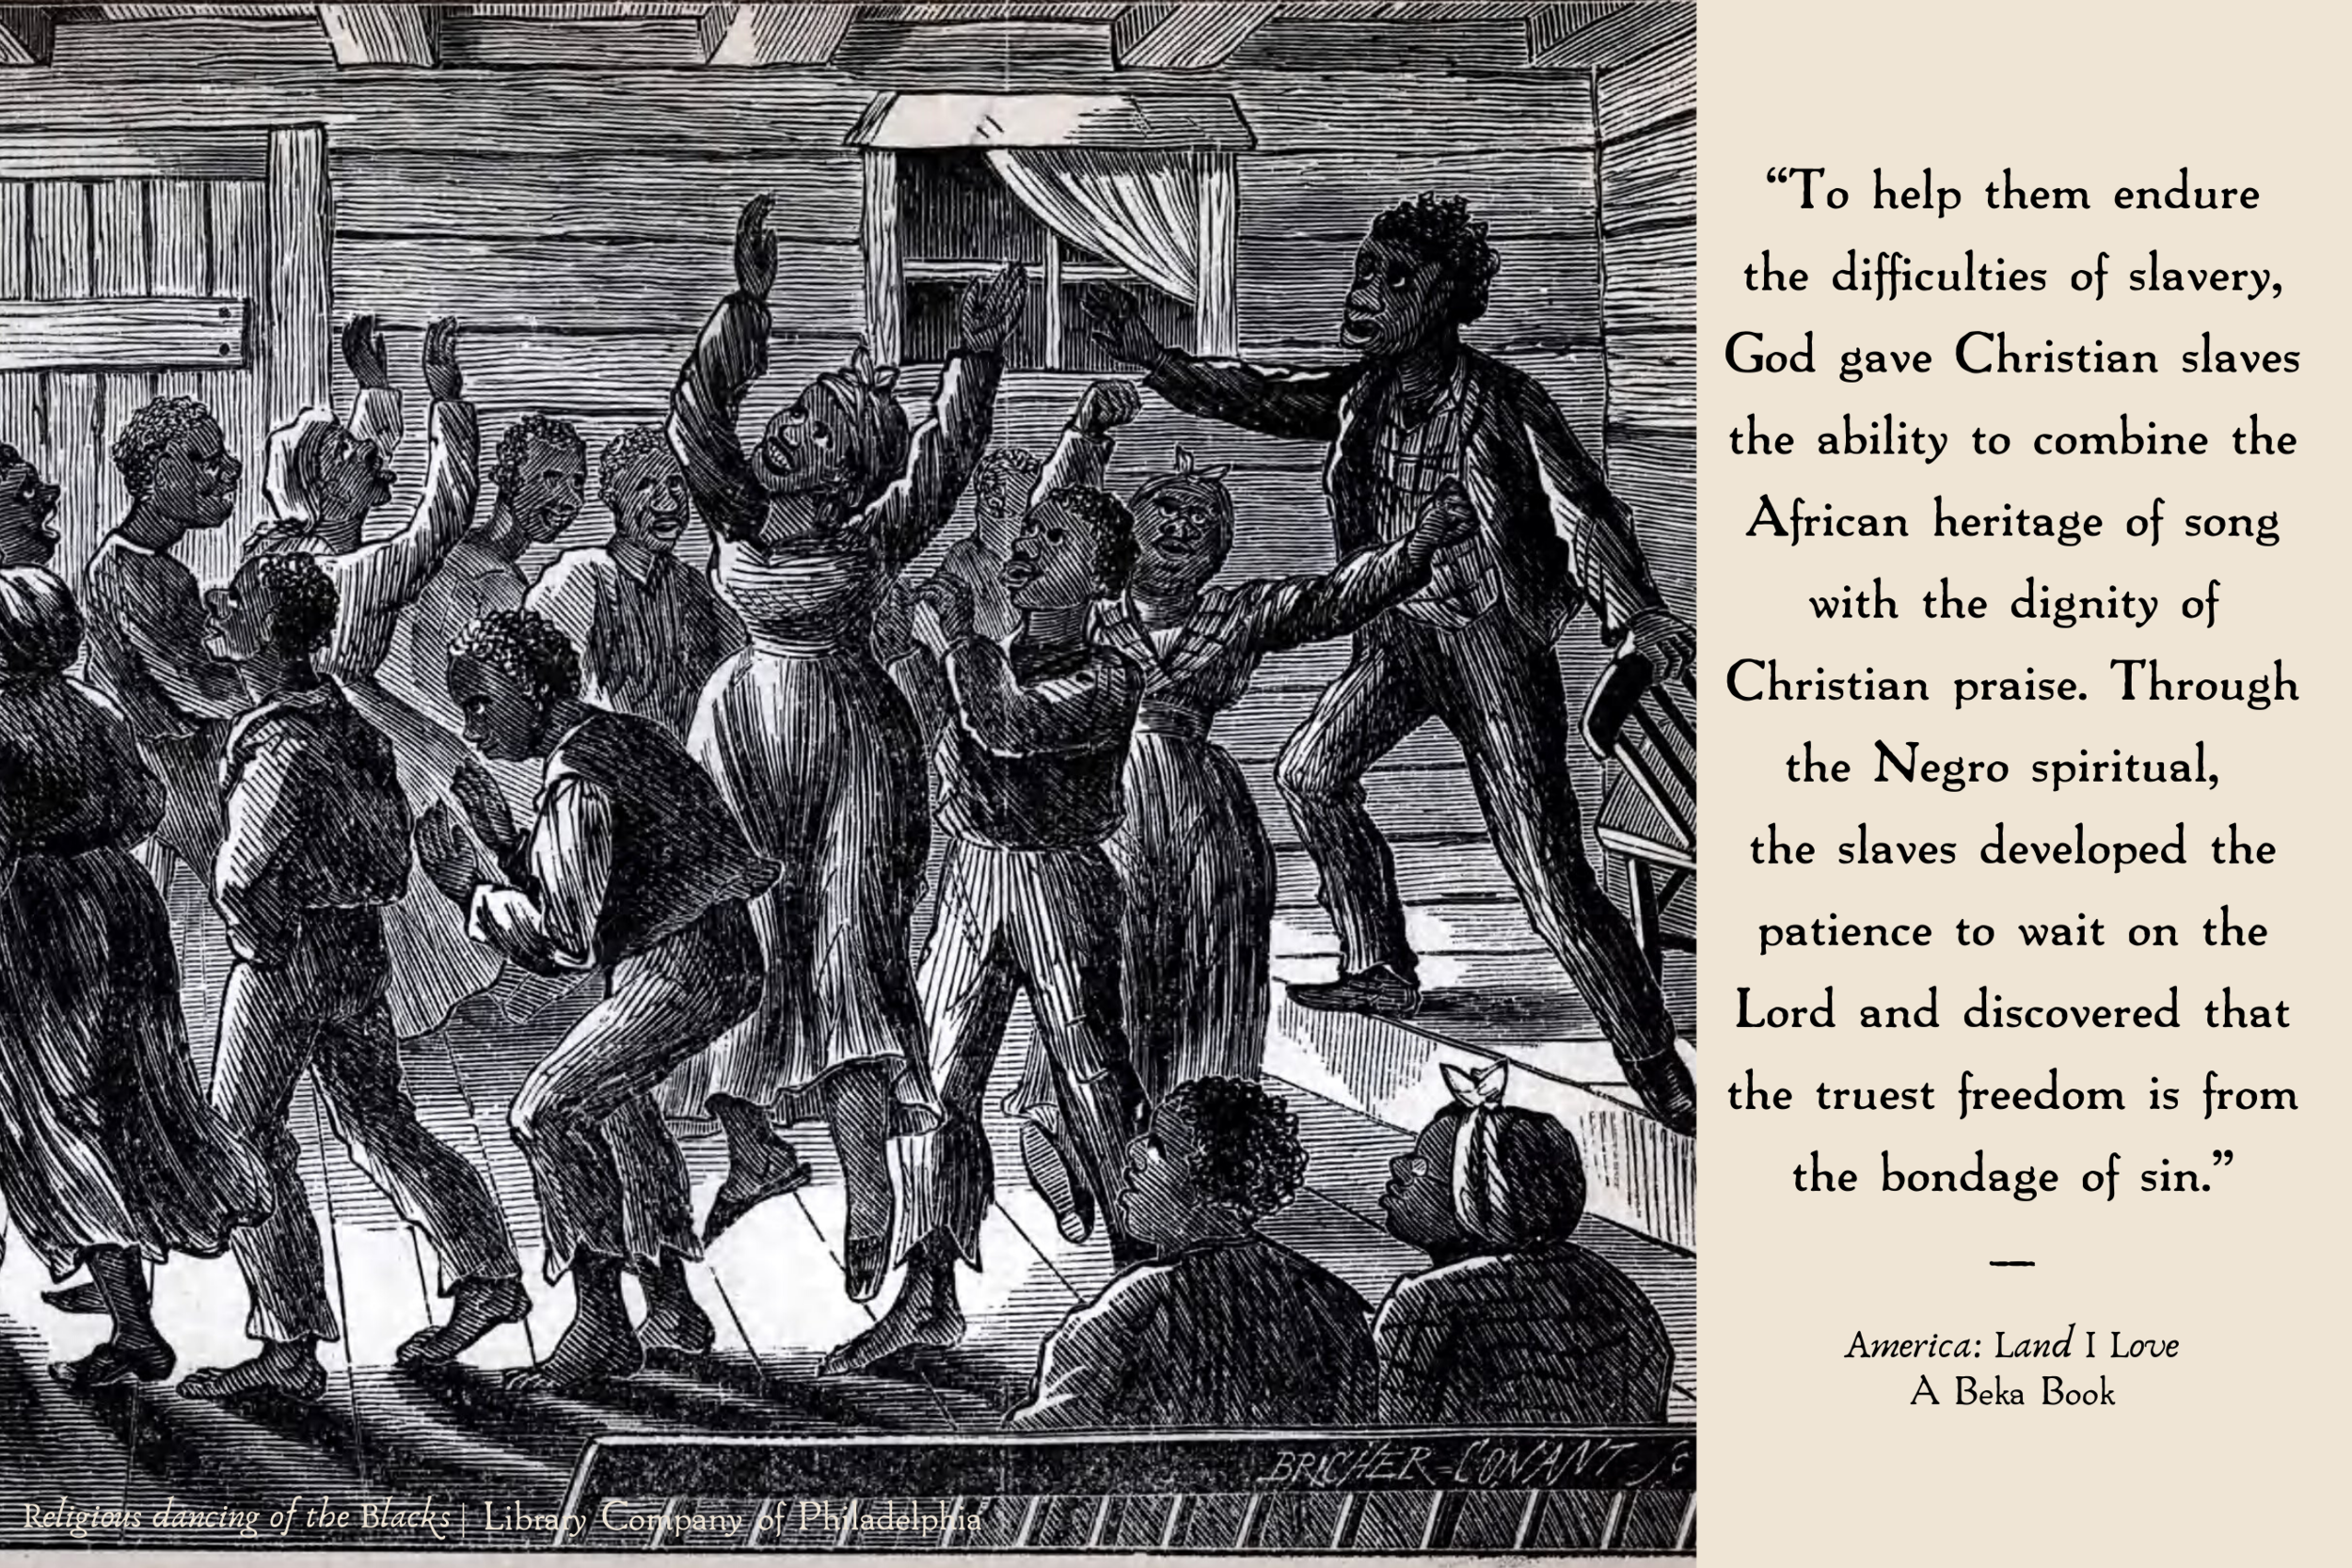 “To help them endure
the difficulties of slavery,
God gave Christian slaves
the ability to combine the
African heritage of song
with the dignity of
Christian praise. Through
the Negro spiritual,
the slaves developed the
patience to wait on the
Lord and discovered that
the truest freedom is from
the bondage of sin.”
—
America: Land I Love
A Beka Book
BRICHER-CONANT SC
Religious dancing of the Blacks | Library Company of Philadelphia